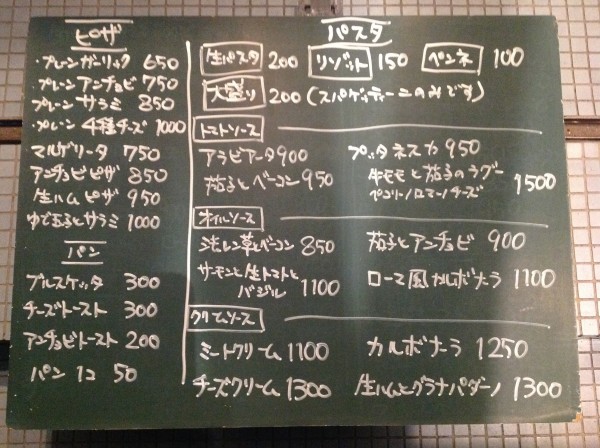 ピザ
・プレーンガーリック 650
・プレーンアンチョビ 750
プレーンサラミ 850
・プレーン4種チーズ 1000
マルゲリータ 750
アンチョビピザ 850
生ハムピザ 950
ゆで玉子とサラミ 1000
パン
ブルスケッタ 300
チーズトースト 300
アンチョビトースト 200
パン 1コ 50
パスタ
生パスタ 200 リゾット 150 ペンネ 100
大盛り 200(スパゲッティーニのみです)
トマトソース
アラビアータ 900 プッタネスカ 950
茄子とベーコン 950 牛モモと茄子のラグー
ペコリーノロマーノチーズ 1500
オイルソース
法レン草とベーコン 850 茄子とアンチョビ 900
サーモンと生トマトと
バジル 1100 ローマ風カルボナーラ 1100
クリームソース
ミートクリーム 1100 カルボナーラ 1250
チーズクリーム 1300 生ハムとグラナパダーノ 1300